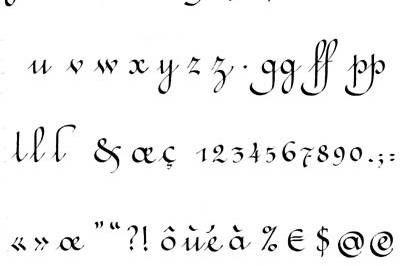 u v w x y z z · gg ff pp
l l l & æ ç 1234567890.;:
« » æ ” “ ?! ô ù é à % € $ @ @